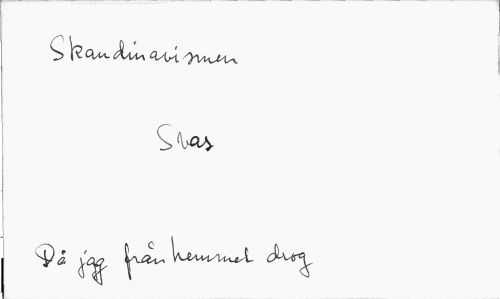 Skandinavismen
Svas
Då jag från hemmet drog